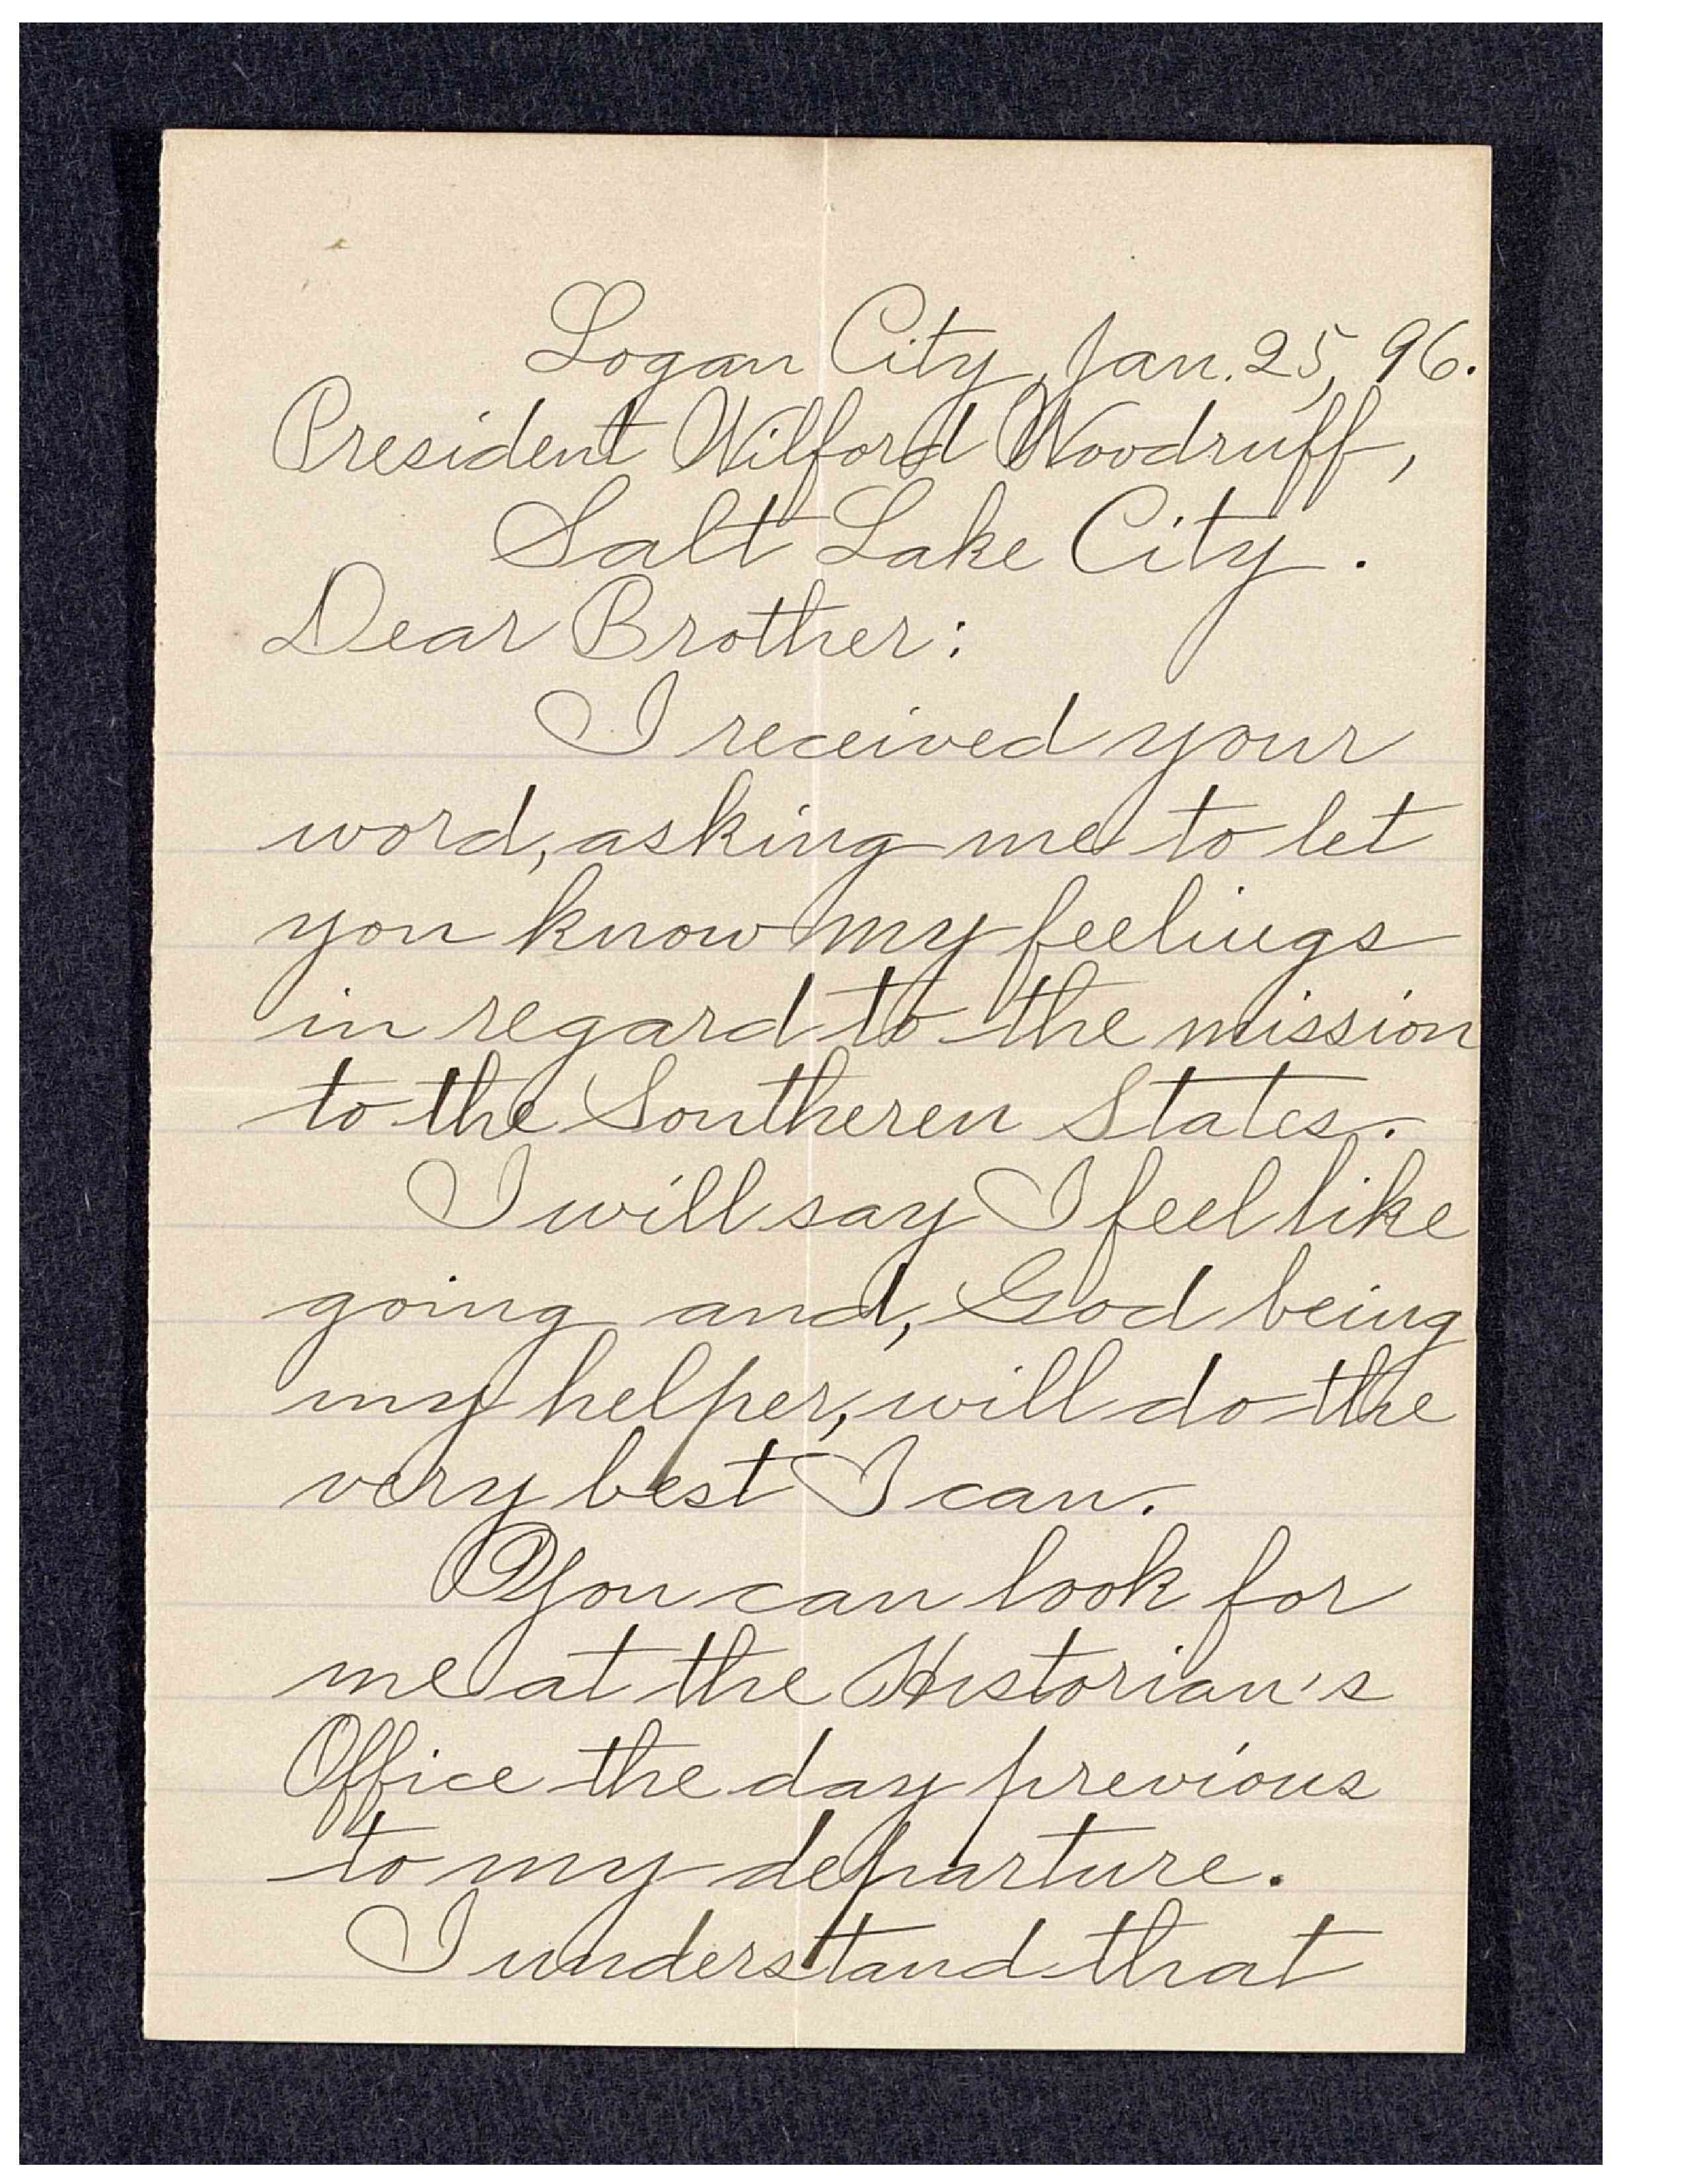 Logan City, Jan. 25, 96.
President Wilford Woodruff,
Salt Lake City.
Dear Brother:
I received your
word, asking me to let
you know my feelings
in regard to the mission
to the Southeren States.
I will say I feel like
going and, God being
my helper, will do the
very best I can.
You can look for
me at the Historian's
Office the day previous
to my departure.
I understand that